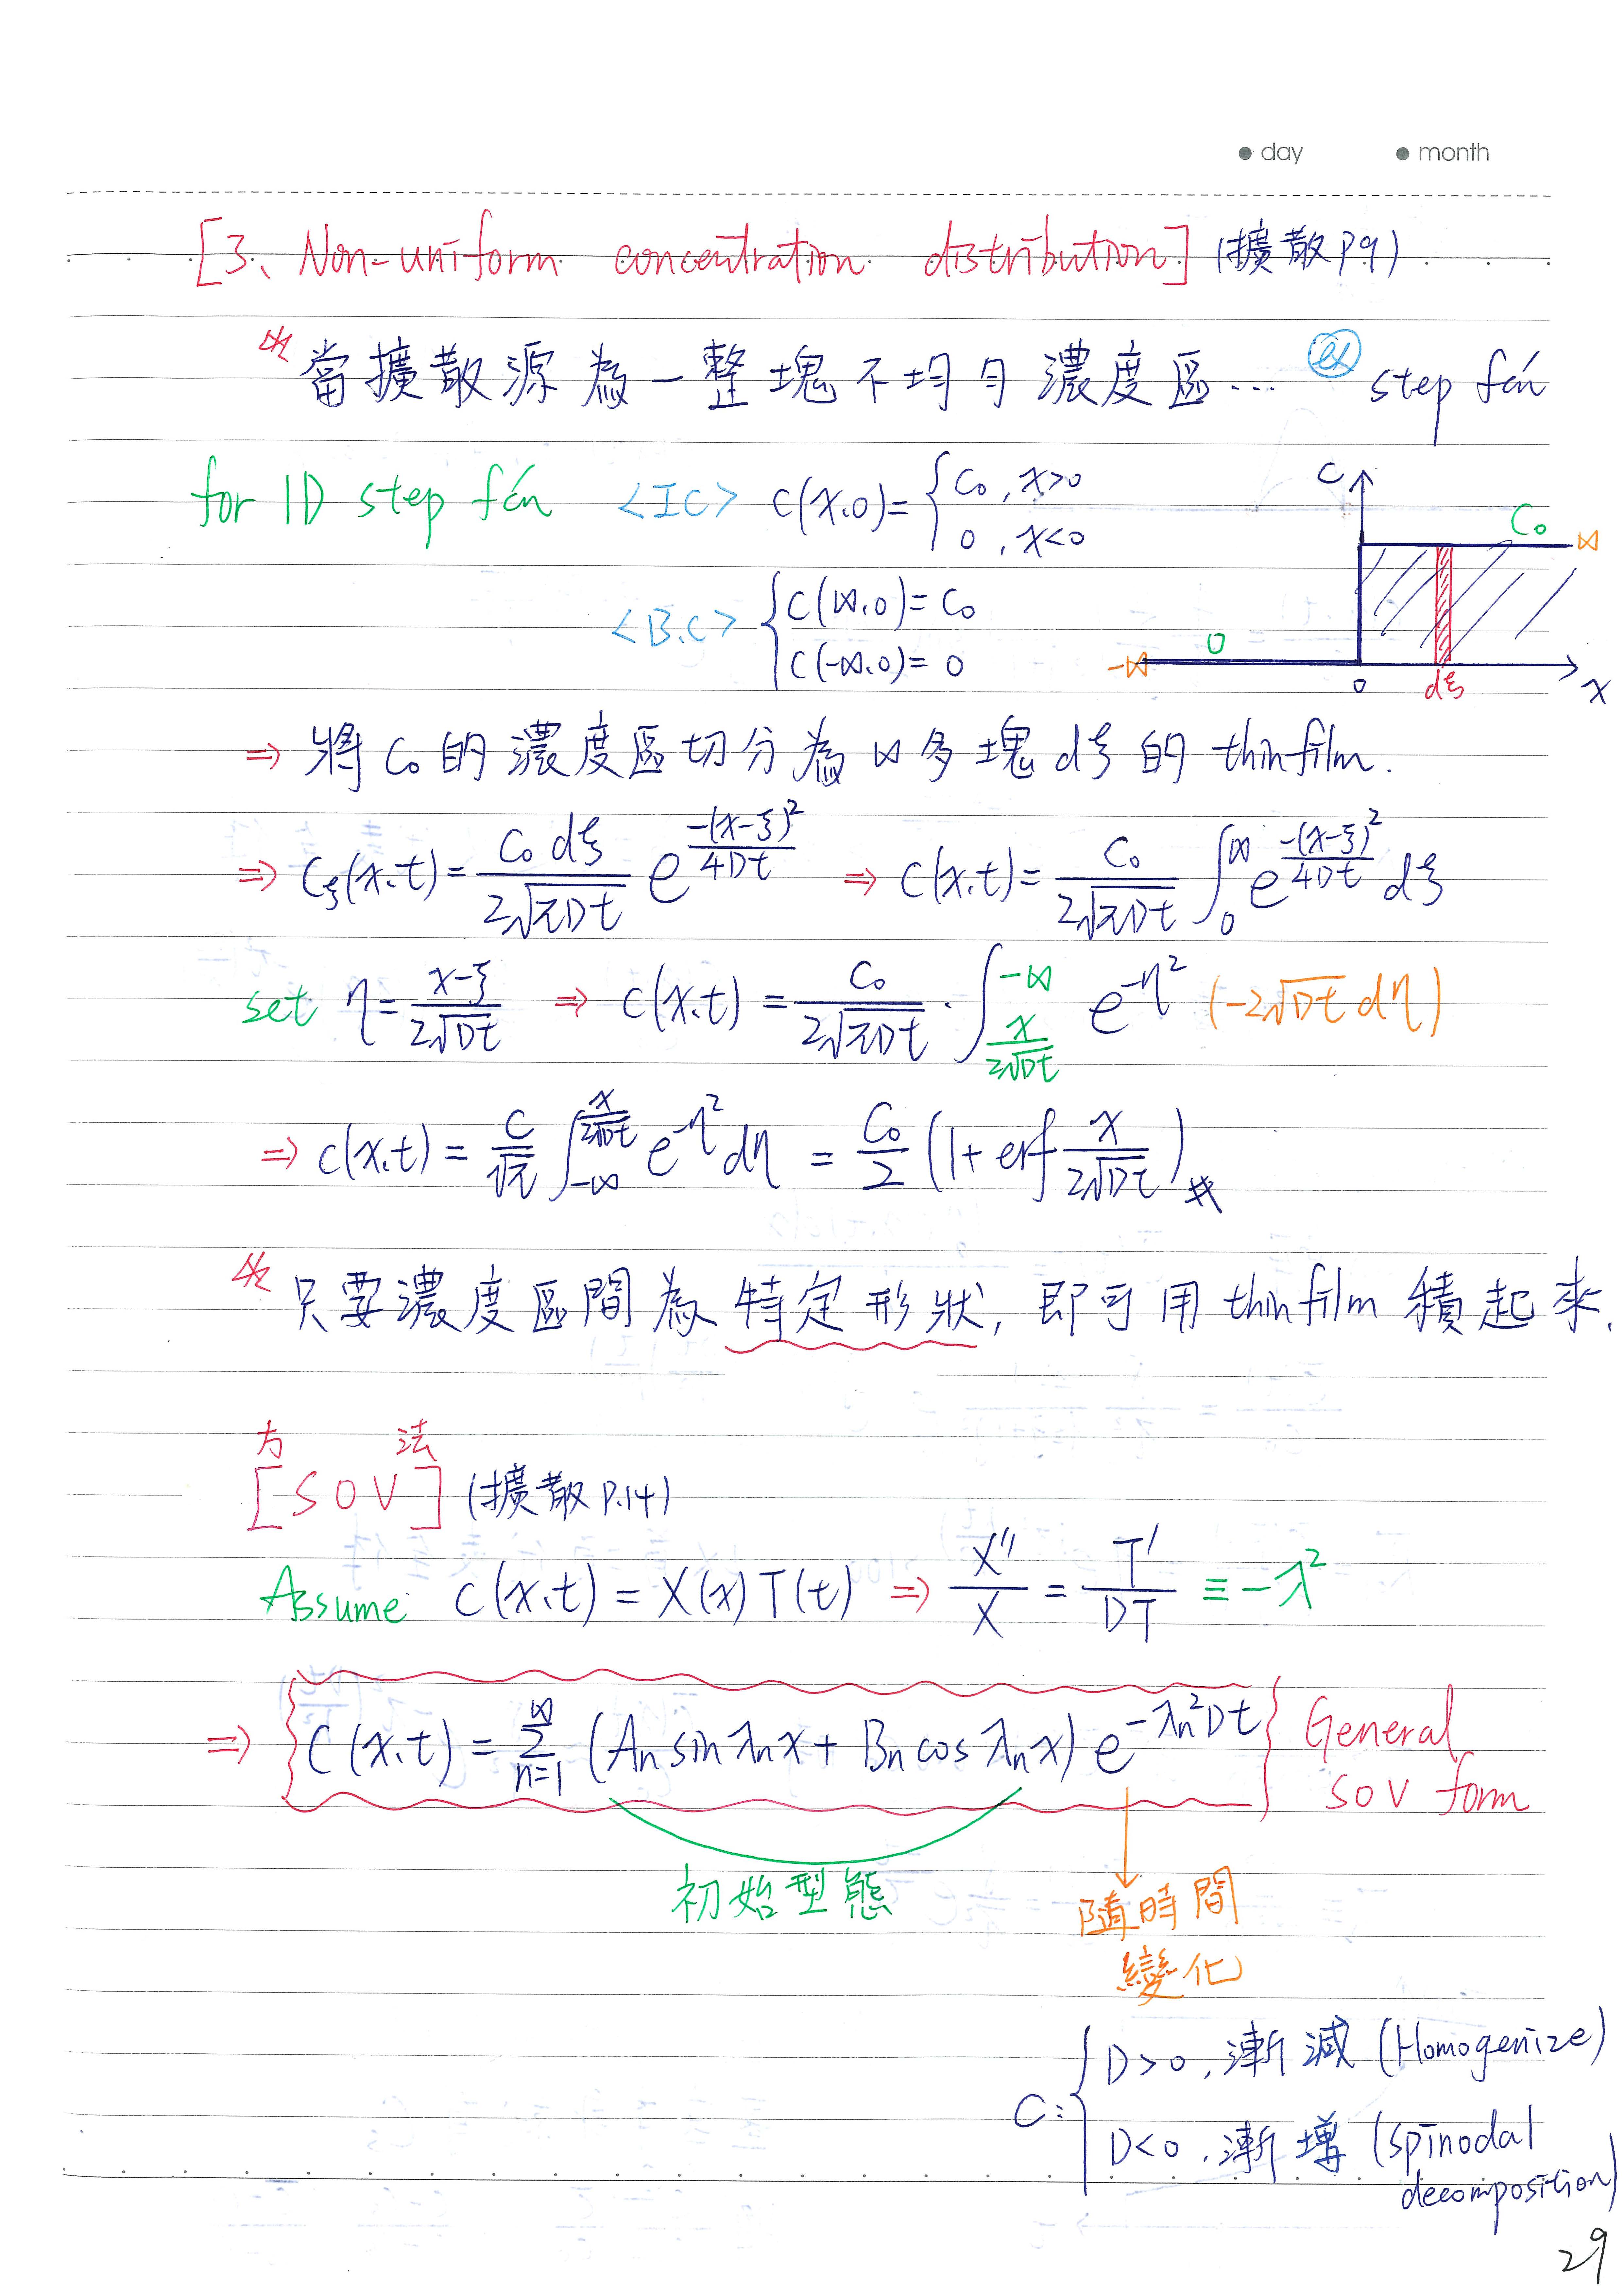 day month
[3、Non-uniform concentration distribution] (擴散P9)
※ 當擴散源為一整塊不均勻濃度區… ex step fcn
for 1D step fcn <IC> C(x,0)={C₀, x>0
0, x<0
C
C₀
∞
<B.C> {C(∞,0)=C₀
C(-∞,0)=0
-∞ 0
0 dξ x
⇒ 將C₀的濃度區切分為∞多塊dξ的thin film.
⇒ Cξ(x,t)= C₀dξ / 2√πDt e^(-(x-ξ)²/4Dt) ⇒ C(x,t)= C₀ / 2√πDt ∫₀^∞ e^(-(x-ξ)²/4Dt) dξ
set η= x-ξ / 2√Dt ⇒ C(x,t) = C₀ / 2√πDt · ∫_(x/2√Dt)^(-∞) e^(-η²) (-2√Dt dη)
⇒ C(x,t) = C/√π ∫_(-∞)^(x/2√Dt) e^(-η²) dη = C₀/2 (1+ erf x/2√Dt)#
※ 只要濃度區間為特定形狀, 即可用thin film 積起來.
方法
[SOV] (擴散P.14)
Assume C(x,t) = X(x)T(t) ⇒ X''/X = T'/DT ≡ -λ²
⇒ {C(x,t) = Σ_(n=1)^∞ (An sin λn x + Bn cos λn x) e^(-λn²Dt)} General
SOV form
初始型態
隨時間
變化
C: {D>0, 漸減 (Homogenize)
D<0, 漸增 (spinodal
decomposition)
29